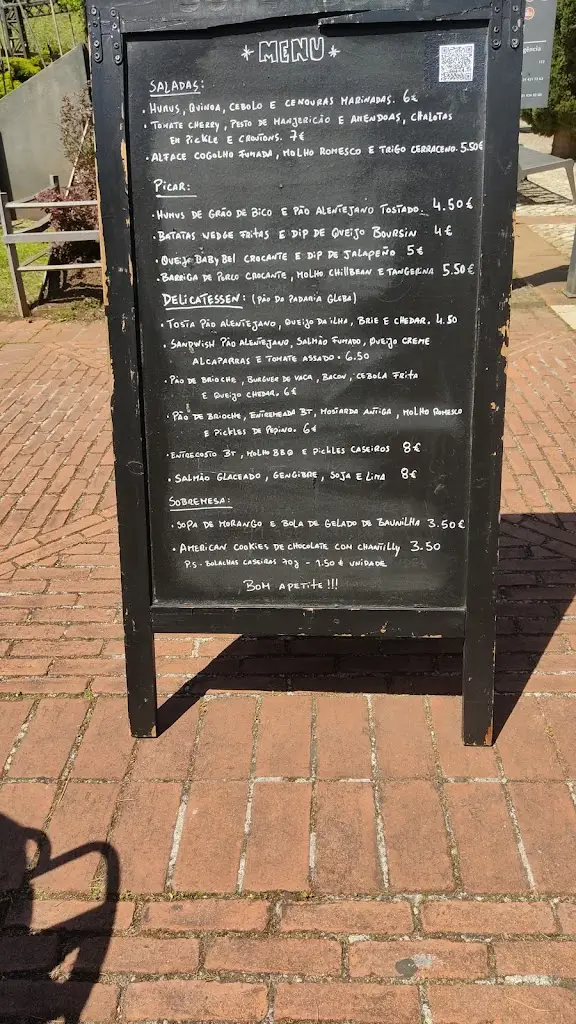 * MENU *
SALADAS:
• HUMUS, QUINOA, CEBOLO E CENOURAS MARINADAS. 6€
• TOMATE CHERRY, PESTO DE MANJERICÃO E AMENDOAS, CHALOTAS
EM PICKLE E CROUTONS. 7€
• ALFACE COGOLHO FUMADA, MOLHO ROMESCO E TRIGO CERRACENO. 5.50€
PICAR:
• HUMUS DE GRÃO DE BICO E PÃO ALENTEJANO TOSTADO. 4.50€
• BATATAS WEDGE FRITAS E DIP DE QUEIJO BOURSIN 4€
• QUEIJO BABYBEL CROCANTE E DIP DE JALAPEÑO 5€
• BARRIGA DE PORCO CROCANTE, MOLHO CHILLBEAN E TANGERINA 5.50€
DELICATESSEN: (PÃO DA PADARIA GLEBA)
• TOSTA PÃO ALENTEJANO, QUEIJO DA ILHA, BRIE E CHEDAR. 4.50
• SANDWISH PÃO ALENTEJANO, SALMÃO FUMADO, QUEIJO CREME
ALCAPARRAS E TOMATE ASSADO. 6.50
• PÃO DE BRIOCHE, BURGUER DE VACA, BACON, CEBOLA FRITA
E QUEIJO CHEDAR. 6€
• PÃO DE BRIOCHE, ENTREMEADA BT, MOSTARDA ANTIGA, MOLHO ROMESCO
E PICKLES DE PEPINO. 6€
• ENTRECOSTO BT, MOLHO BBQ E PICKLES CASEIROS 8€
• SALMÃO GLACEADO, GENGIBRE, SOJA E LIMA 8€
SOBREMESA:
• SOPA DE MORANGO E BOLA DE GELADO DE BAUNILHA 3.50€
• AMERICAN COOKIES DE CHOCOLATE COM CHANTILLY 3.50
P.S - BOLACHAS CASEIRAS 70g - 1.50€ UNIDADE
BOM APETITE!!!